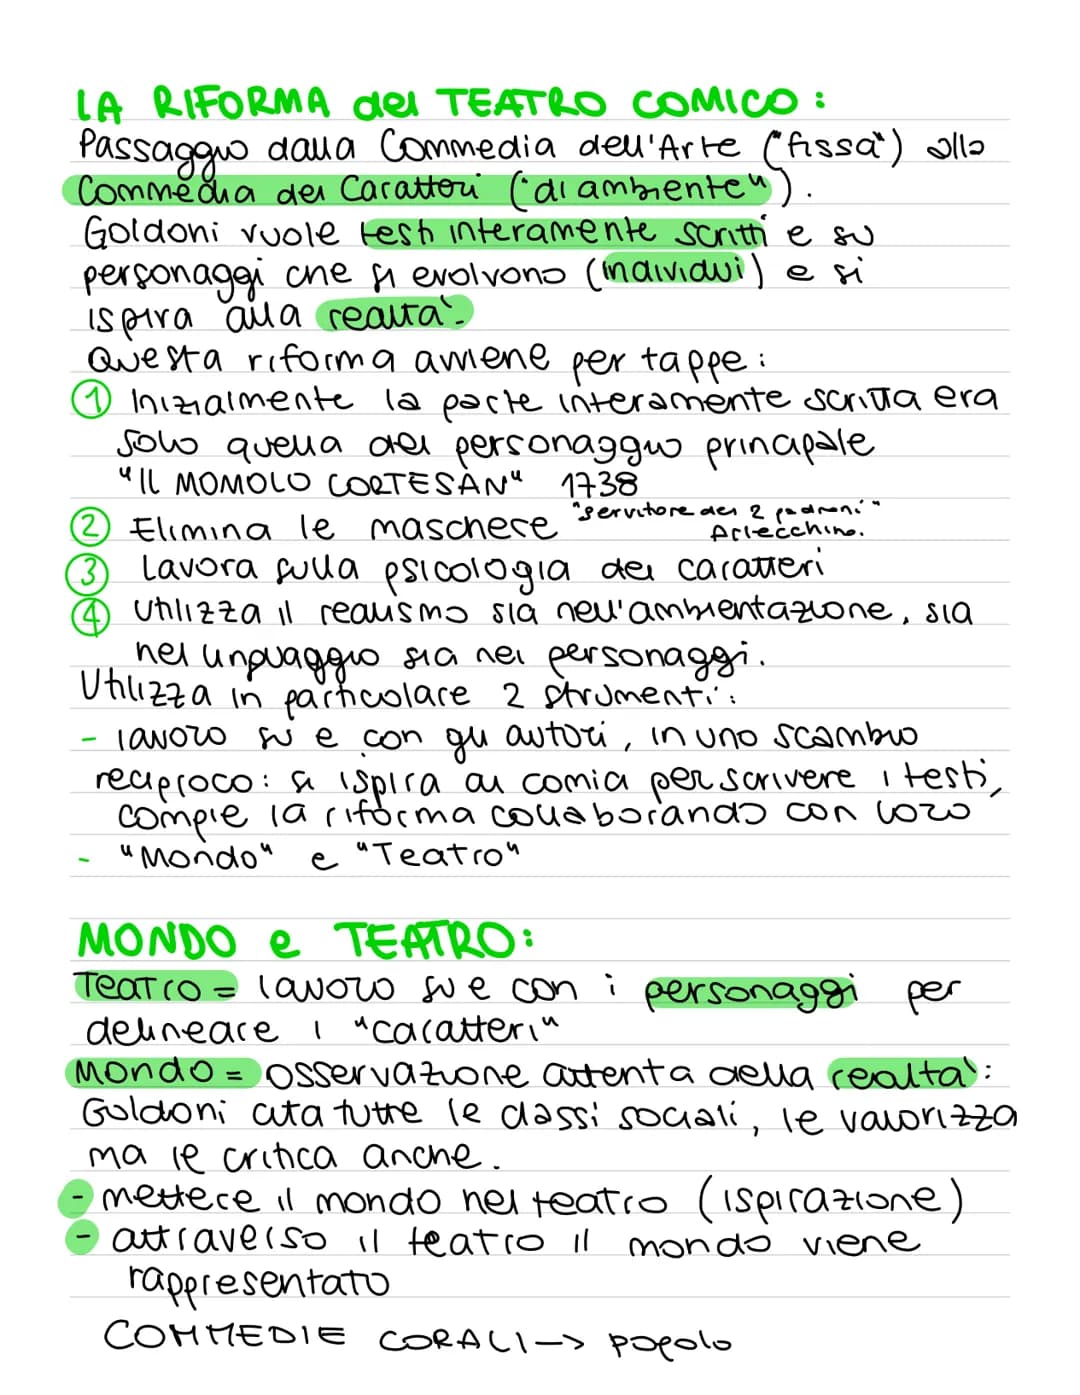 LA RIFORMA del TEATRO COMICO:
Passaggio dalla Commedia dell'Arte ("fissa") alla
Commedia dei Caratteri ("di ambiente").
Goldoni vuole testi interamente scritti e su
personaggi che si evolvono (individui) e si
ispira alla realtà.
Questa riforma avviene per tappe:
1 Inizialmente la parte interamente scritta era
solo quella del personaggio principale
"IL MOMOLO CORTESAN" 1738
2 Elimina le maschere "servitore dei 2 padroni"
Arlecchino.
3 Lavora sulla psicologia dei caratteri
4 Utilizza il realismo sia nell'ambientazione, sia
nel linguaggio sia nei personaggi.
Utilizza in particolare 2 strumenti:
- lavoro su e con gli autori, in uno scambio
reciproco: si ispira ai comici per scrivere i testi,
compie la riforma collaborando con loro
- "Mondo" e "Teatro"
MONDO e TEATRO:
Teatro = lavoro su e con i personaggi per
delineare i "caratteri"
Mondo = osservazione attenta della realtà:
Goldoni cita tutte le classi sociali, le valorizza
ma le critica anche.
- mettere il mondo nel teatro (ispirazione)
- attraverso il teatro il mondo viene
rappresentato
COMMEDIE CORALI -> popolo